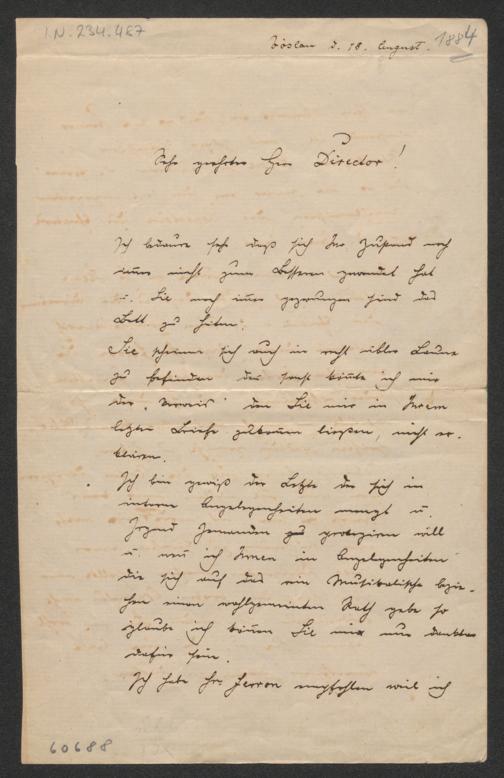 I.N. 234.487
Vöslau d. 18. August. 1884
Sehr geehrter Herr Director!
Ich bedaure sehr daß sich Ihr Zustand noch
immer nicht zum Besseren gewendet hat
u. Sie noch immer gezwungen sind das
Bett zu hüten.
Sie scheinen sich auch in recht übler Laune
zu befinden den sonst könnte ich mir
den „Verweis" den Sie mir in Ihrem
letzten Briefe zukommen ließen, nicht er-
klären.
Ich bin gewiß der Letzte der sich in
interne Angelegenheiten mengt u.
Irgend Jemanden protegiren will
u. wenn ich Ihnen in Angelegenheiten
die sich auf das rein Musikalische bezie-
hen einen wohlgemeinten Rath gebe so
glaube ich können Sie mir nur dankbar
dafür sein.
Ich habe Frl. empfohlen weil ich
60688